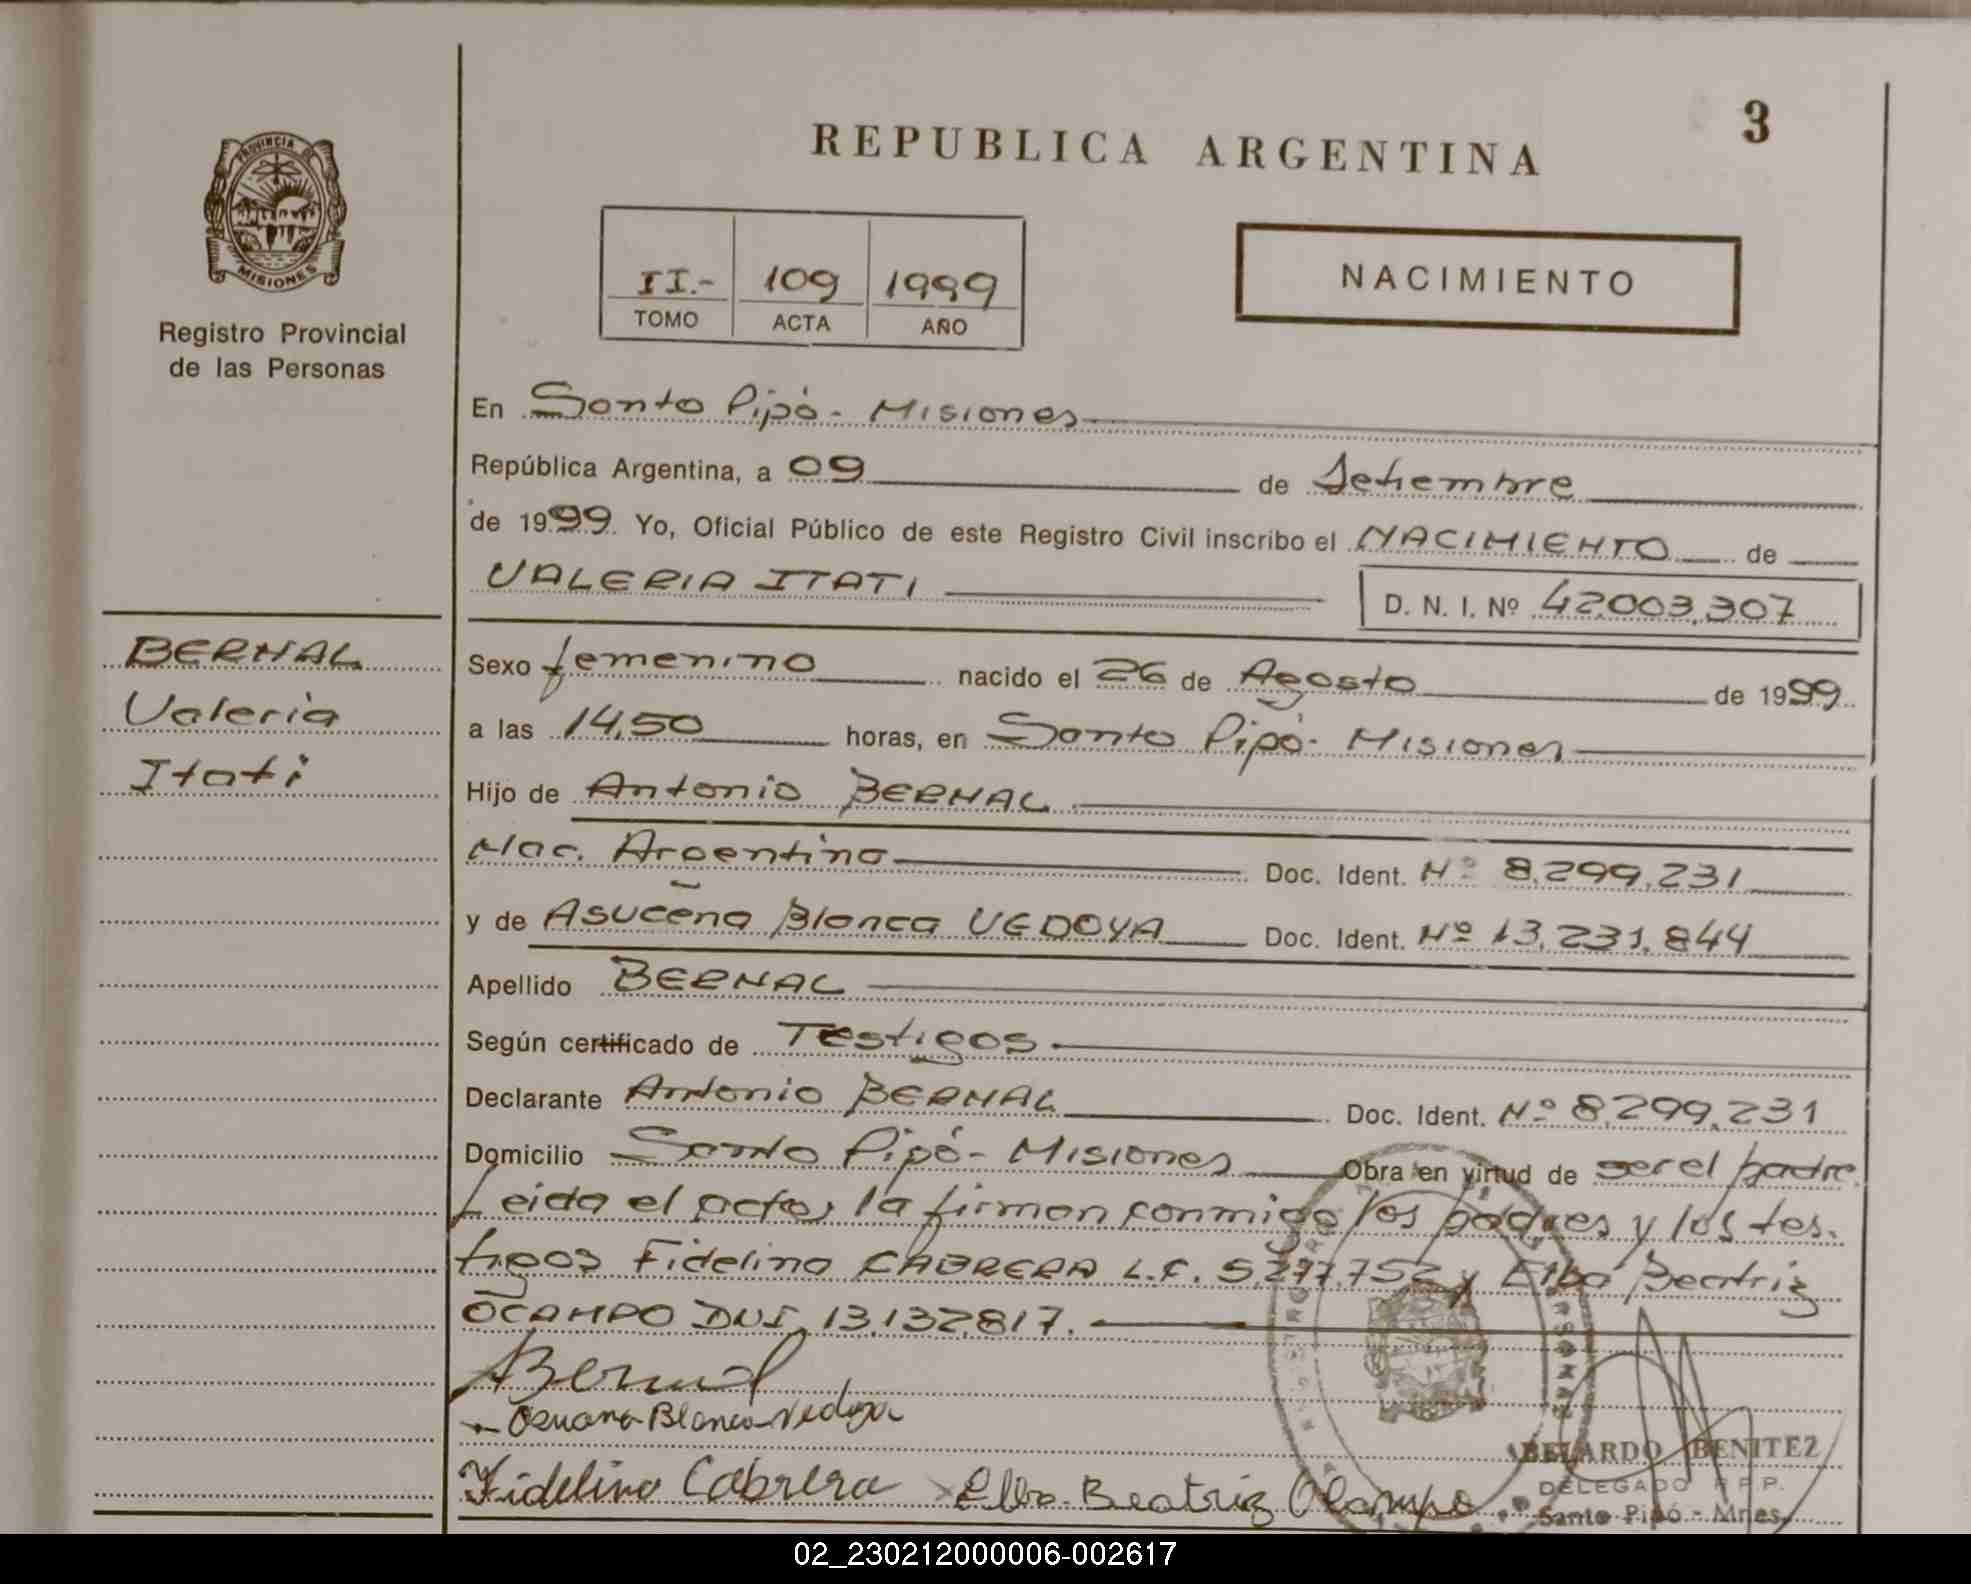 REPUBLICA ARGENTINA
3
PROVINCIA DE
MISIONES
Registro Provincial
de las Personas
II.- 109 1999
TOMO ACTA AÑO
NACIMIENTO
En Santo Pipó - Misiones
República Argentina, a 09 de Setiembre
de 1999. Yo, Oficial Público de este Registro Civil inscribo el NACIMIENTO de
VALERIA ITATI D. N. I. Nº 42.003.307
BERNAL
Valeria
Itati
Sexo femenino nacido el 26 de Agosto de 1999
a las 14,50 horas, en Santo Pipó - Misiones
Hijo de Antonio BERNAL
Nac. Argentina Doc. Ident. Nº 8.299.231
y de Asucena Blanca VEDOYA Doc. Ident. Nº 13.231.844
Apellido BERNAL
Según certificado de Testigos
Declarante Antonio BERNAL Doc. Ident. Nº 8.299.231
Domicilio Santo Pipó - Misiones Obra en virtud de ser el padre.
Leida el acta, la firman conmigo los padres y los tes-
tigos Fidelino CABRERA L.E. 5.277.752 y Elba Beatriz
OCAMPO DNI. 13.132.817.
Bernal
Blanca Vedoya
Fidelino Cabrera Elba Beatriz Ocampo
ABELARDO BENITEZ
DELEGADO R.P.P.
Santo Pipó - Mnes.
02_230212000006-002617